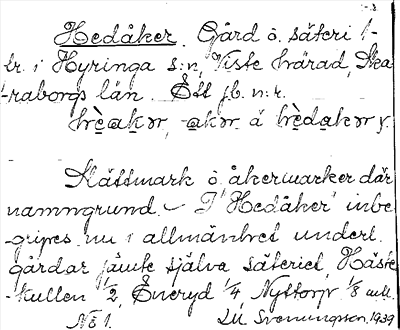 Hedåker. Gård o. säteri t-
tr. i Hyringa s:n, Viste härad, Ska-
raborgs län. Ett jb. n:r.
hèakər, -akər å hèdakər y.
Slättmark o. åkermarker där
namngrund. – I "Hedåker" inbe-
gripes nu i allmänhet underl.
gårdar jämte själva säteriet, Häste-
kullen 1/2, Eneryd 1/4, Nyttorp 1/8 mtl.
No 1. Svenungsson, 1939